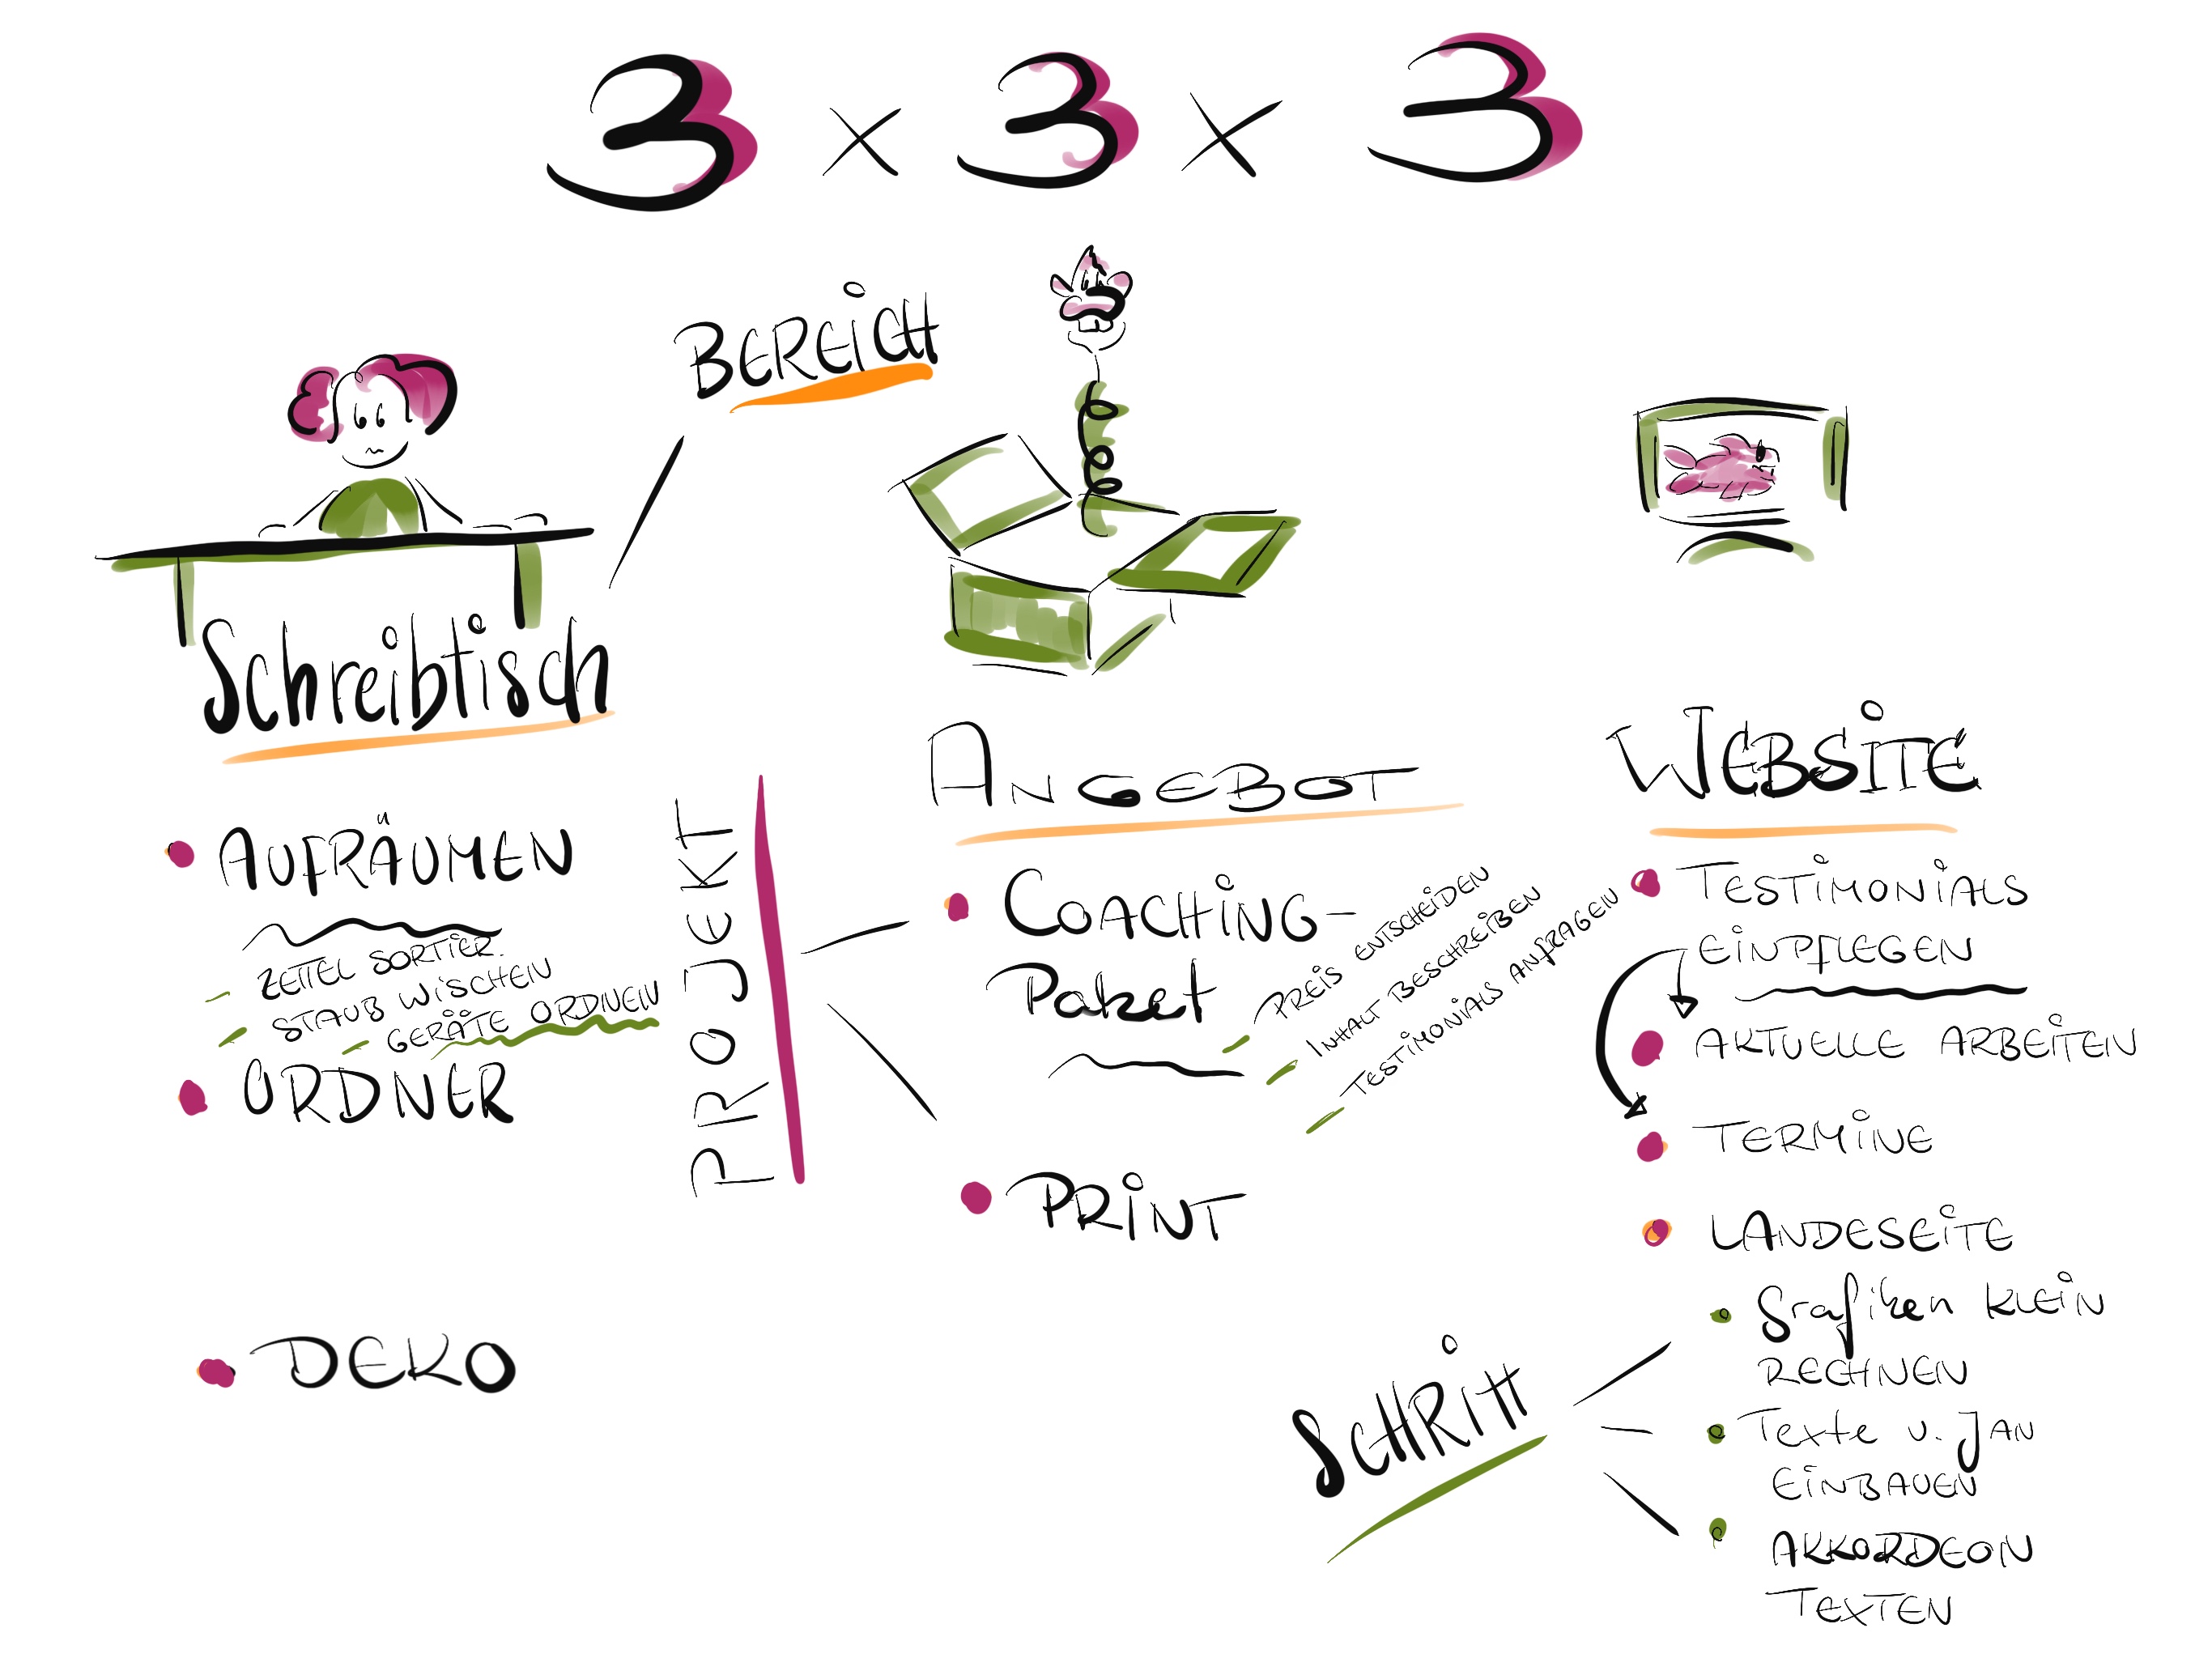 3 x 3 x 3
BEREICH
Schreibtisch
AUFRÄUMEN
ZETTEL SORTIER.
STAUB WISCHEN
GERÄTE ORDNEN
ORDNER
DEKO
PROJEKT
ANGEBOT
COACHING-
Paket
PREIS ENTSCHEIDEN
INHALT BESCHREIBEN
TESTIMONIALS ANFRAGEN
PRINT
WEBSITE
TESTIMONIALS
EINPFLEGEN
AKTUELLE ARBEITEN
TERMINE
LANDESEITE
SCHRITT
Grafiken KLEIN
RECHNEN
Texte v. JAN
EINBAUEN
AKKORDEON
TEXTEN